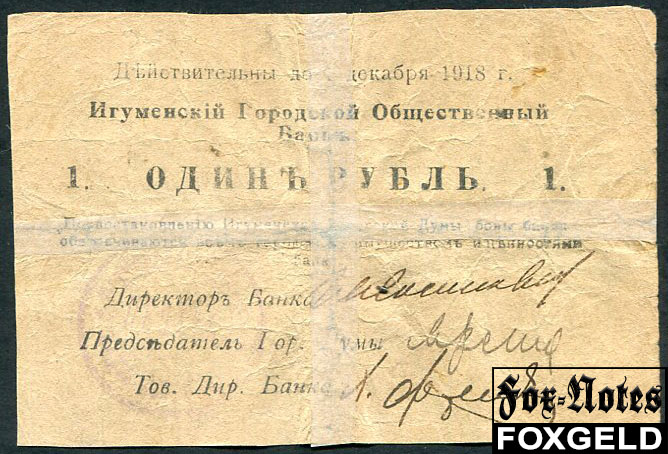 Дѣйствительны до декабря 1918 г.
Игуменскій Городской Общественный
Банкъ.
1. ОДИНЪ РУБЛЬ. 1.
По постановленію Думы боны банка
обезпечиваются всѣмъ имуществомъ и цѣнностями
банка
Директоръ Банка
Предсѣдатель Гор. Думы
Тов. Дир. Банка
Fox-Notes
FOXGELD